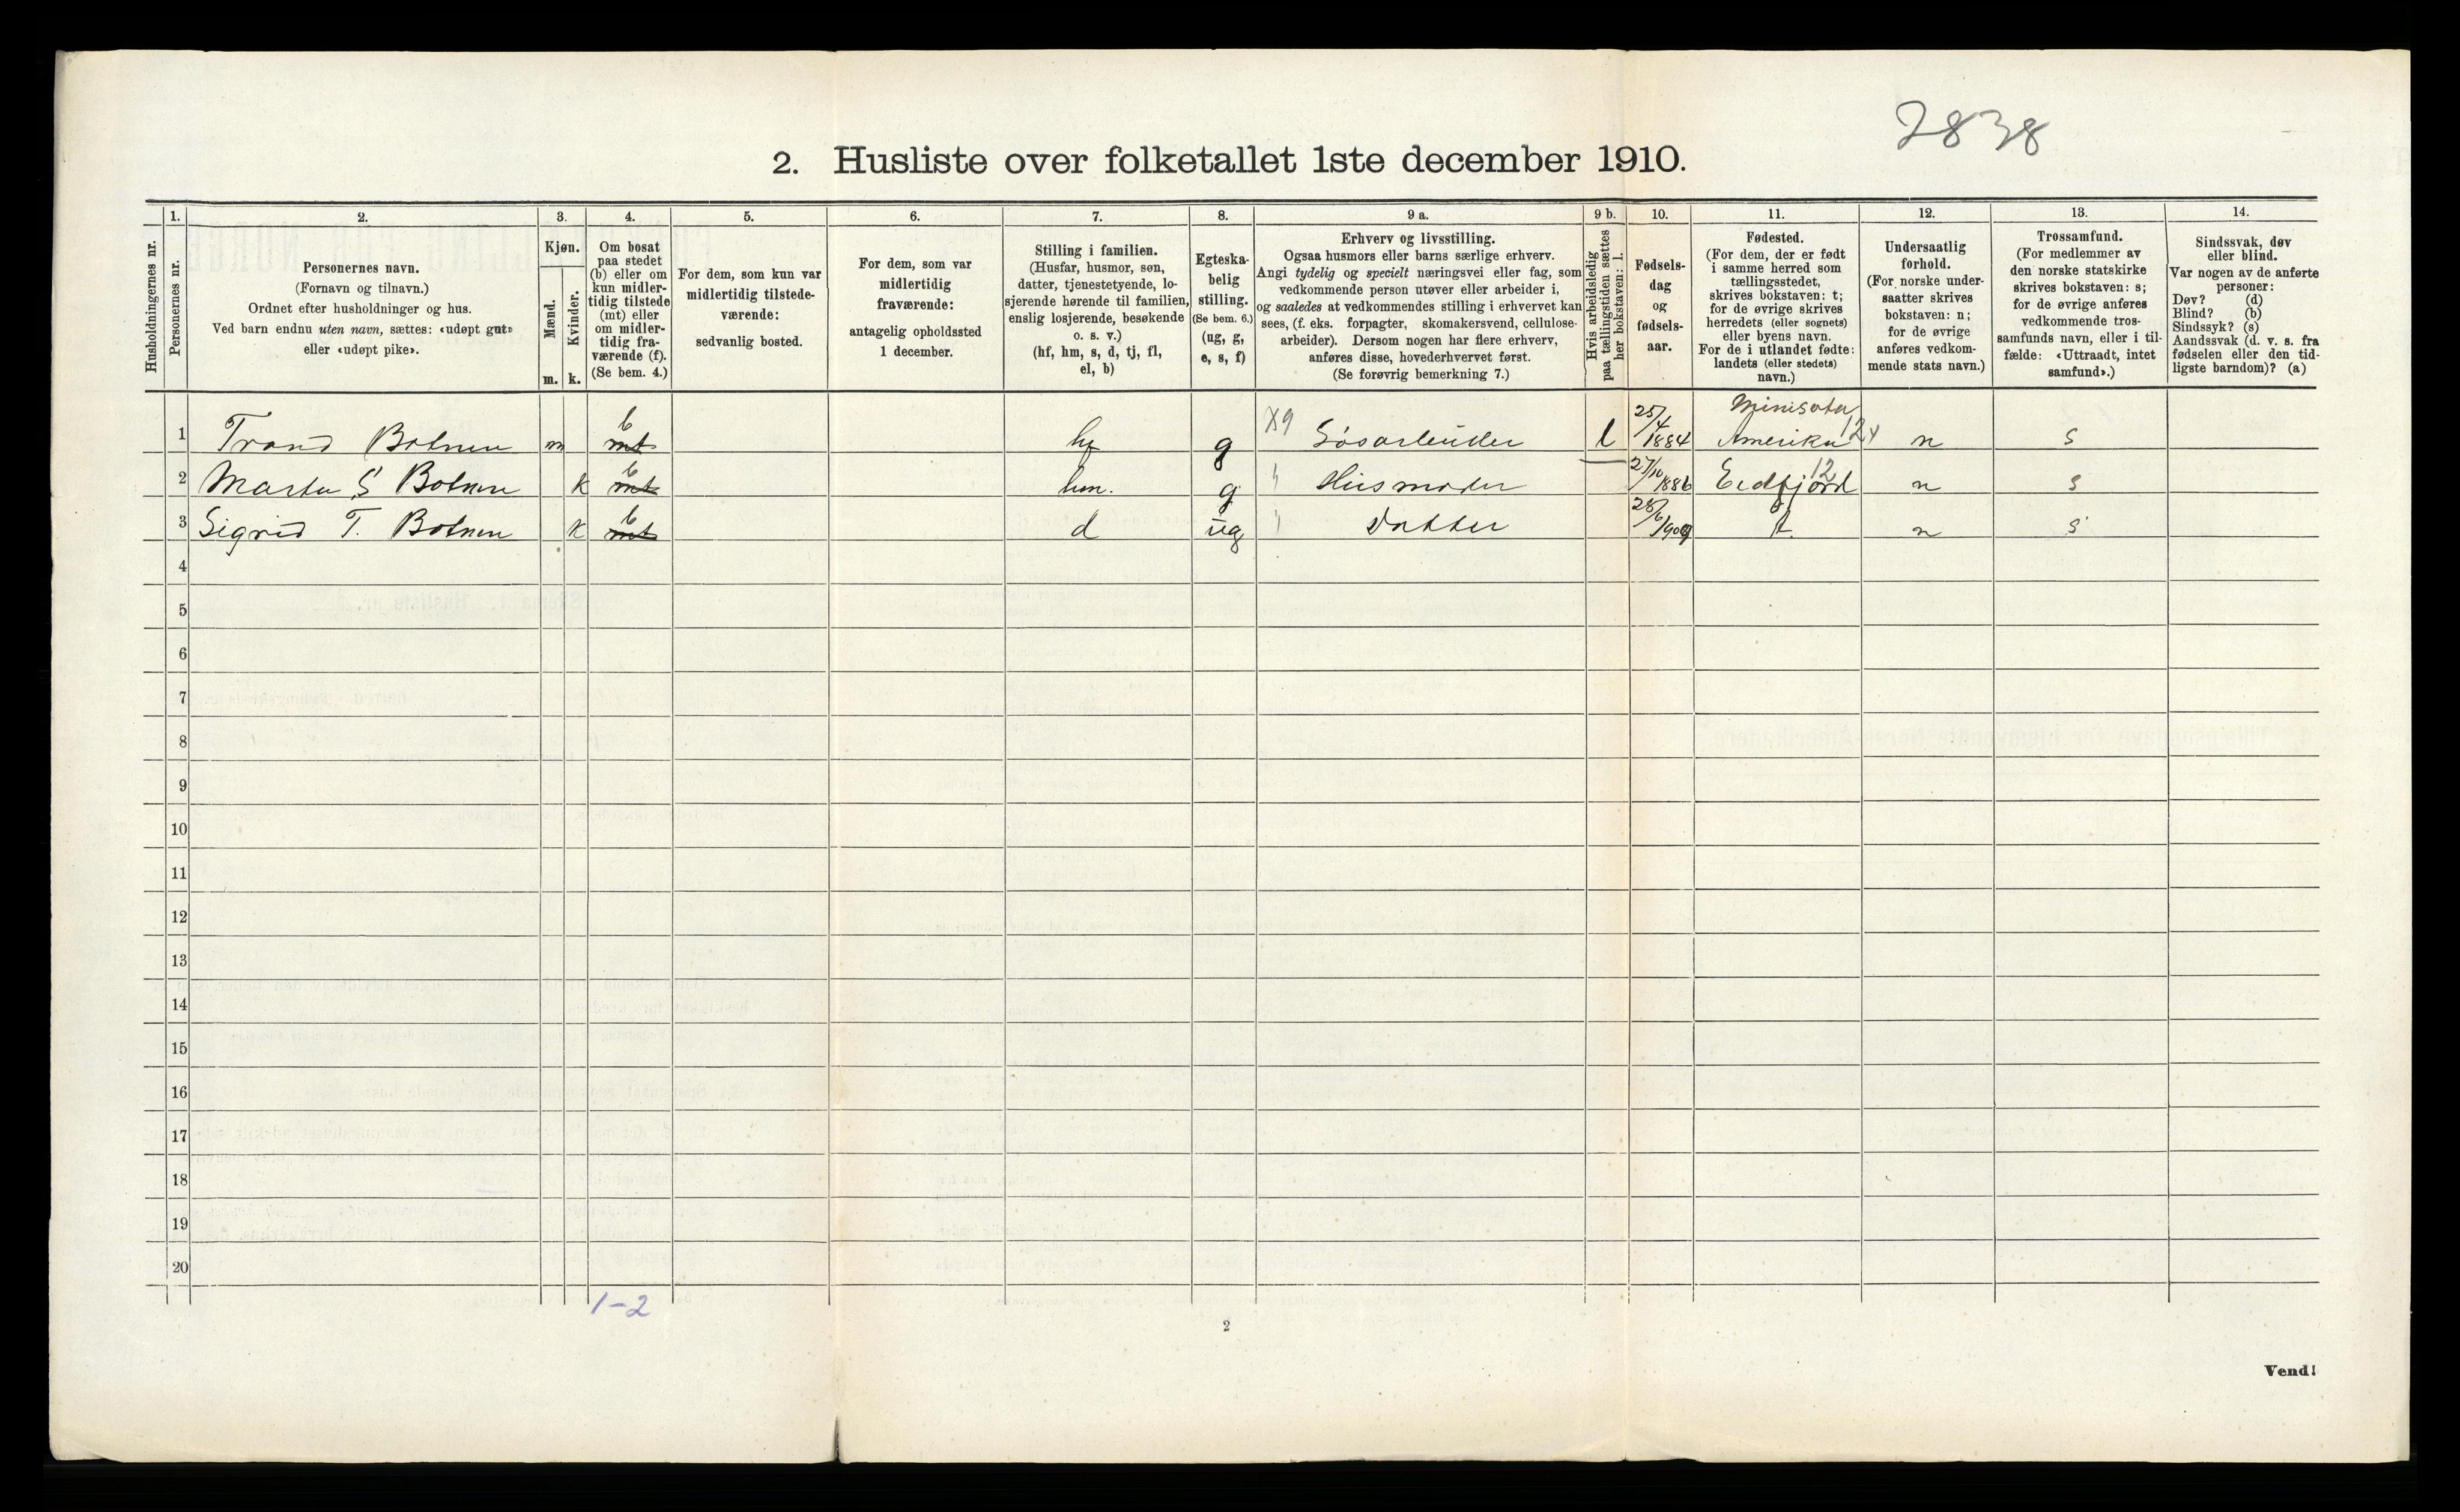 2838
2. Husliste over folketallet 1ste december 1910.
Husholdningernes nr.
1.
Personernes nr.
2.
Personernes navn.
(Fornavn og tilnavn.)
Ordnet efter husholdninger og hus.
Ved barn endnu uten navn, sættes: «udøpt gut»
eller «udøpt pike».
3.
Kjøn.
Mænd.
m.
Kvinder.
k.
4.
Om bosat
paa stedet
(b) eller om
kun midler-
tidig tilstede
(mt) eller
om midler-
tidig fra-
værende (f).
(Se bem. 4.)
5.
For dem, som kun var
midlertidig tilstede-
værende:
sedvanlig bosted.
6.
For dem, som var
midlertidig
fraværende:
antagelig opholdssted
1 december.
7.
Stilling i familien.
(Husfar, husmor, søn,
datter, tjenestetyende, lo-
sjerende hørende til familien,
enslig losjerende, besøkende
o. s. v.)
(hf, hm, s, d, tj, fl,
el, b)
8.
Egteska-
belig
stilling.
(Se bem. 6.)
(ug, g,
e, s, f)
9 a.
Erhverv og livsstilling.
Ogsaa husmors eller barns særlige erhverv.
Angi tydelig og specielt næringsvei eller fag, som
vedkommende person utøver eller arbeider i,
og saaledes at vedkommendes stilling i erhvervet kan
sees, (f. eks. forpagter, skomakersvend, cellulose-
arbeider). Dersom nogen har flere erhverv,
anføres disse, hovederhvervet først.
(Se forøvrig bemerkning 7.)
9 b.
Hvis arbeidsledig
paa tællingstiden sættes
her bokstaven: l.
10.
Fødsels-
dag
og
fødsels-
aar.
11.
Fødested.
(For dem, der er født
i samme herred som
tællingsstedet,
skrives bokstaven: t;
for de øvrige skrives
herredets (eller sognets)
eller byens navn.
For de i utlandet fødte:
landets (eller stedets)
navn.)
12.
Undersaatlig
forhold.
(For norske under-
saatter skrives
bokstaven: n;
for de øvrige
anføres vedkom-
mende stats navn.)
13.
Trossamfund.
(For medlemmer av
den norske statskirke
skrives bokstaven: s;
for de øvrige anføres
vedkommende tros-
samfunds navn, eller i til-
fælde: «Uttraadt, intet
samfund».)
14.
Sindssvak, døv
eller blind.
Var nogen av de anførte
personer:
Døv? (d)
Blind? (b)
Sindssyk? (s)
Aandssvak (d. v. s. fra
fødselen eller den tid-
ligste barndom)? (a)
1 Trond Botnen m b mt hf g X9 Løsarbeider l 25/4 1884 Minisota Amerika 124 n s
2 Marta S Botnen k b mt hm. g " Husmoder 27/10 1886 Eidfjord 12 n s
3 Sigrid T. Botnen k b mt d ug " Datter 28/6 1909 t. n s
4
5
6
7
8
9
10
11
12
13
14
15
16
17
18
19
20
1-2
2
Vend!